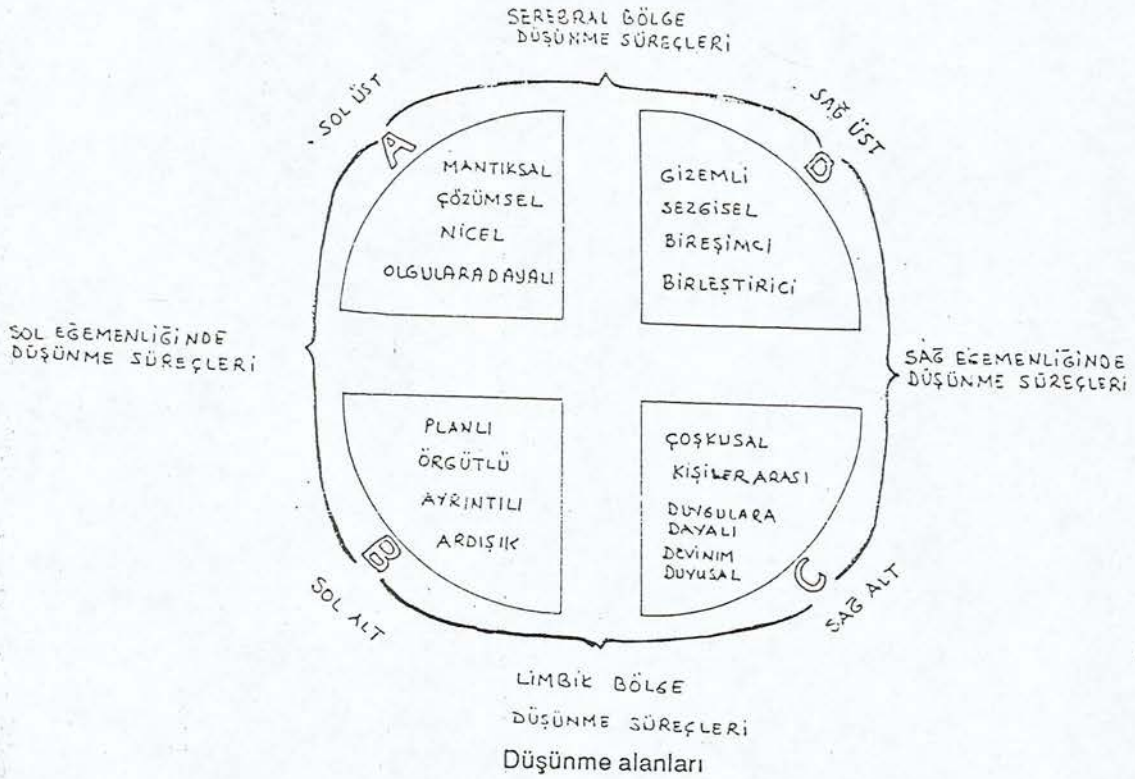 SEREBRAL BÖLGE
DÜŞÜNME SÜREÇLERİ
SOL ÜST
SAĞ ÜST
A
D
MANTIKSAL
ÇÖZÜMSEL
NİCEL
OLGULARA DAYALI
GİZEMLİ
SEZGİSEL
BİREŞİMCİ
BİRLEŞTİRİCİ
SOL EĞEMENLİĞİNDE
DÜŞÜNME SÜREÇLERİ
SAĞ EGEMENLİĞİNDE
DÜŞÜNME SÜREÇLERİ
PLANLI
ÖRGÜTLÜ
AYRINTILI
ARDIŞIK
ÇOŞKUSAL
KİŞİLER ARASI
DUYGULARA
DAYALI
DEVİNİM
DUYUSAL
B
C
SOL ALT
SAĞ ALT
LİMBİK BÖLGE
DÜŞÜNME SÜREÇLERİ
Düşünme alanları